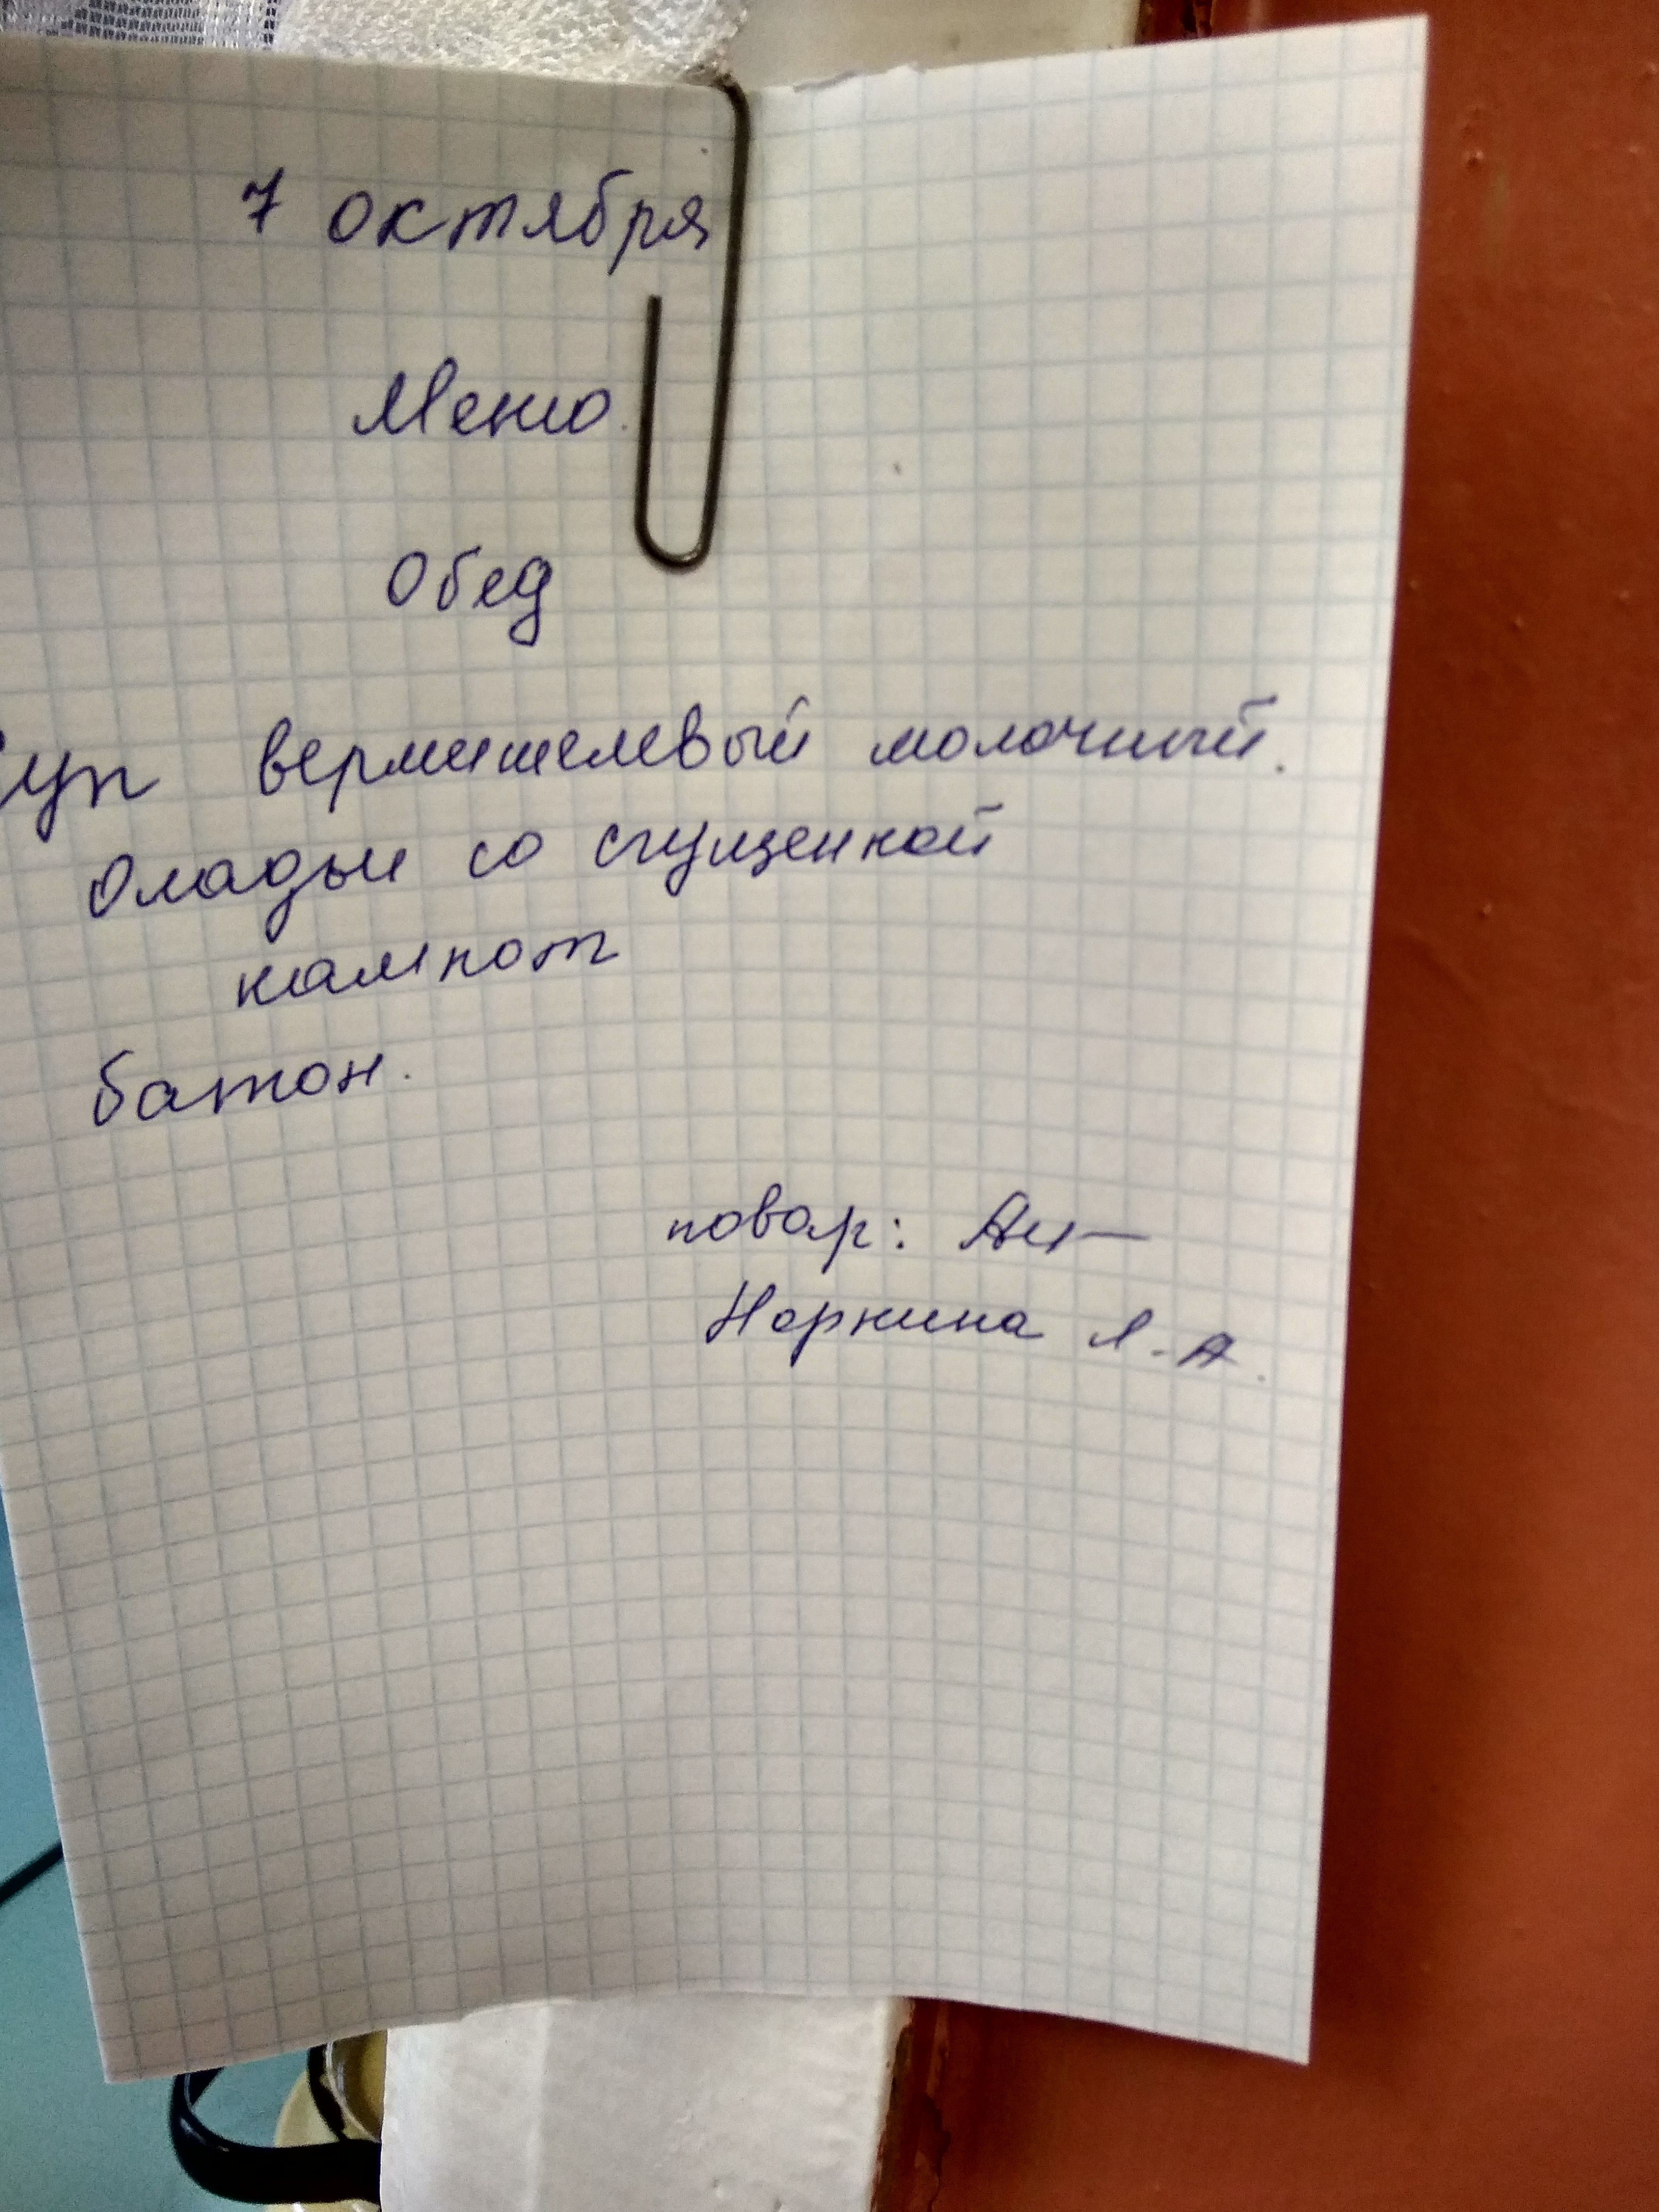 7 октября
Меню.
Обед
Суп вермишелевый молочный.
Оладьи со сгущенкой
компот
батон.
повар:
Норкина Л.А.